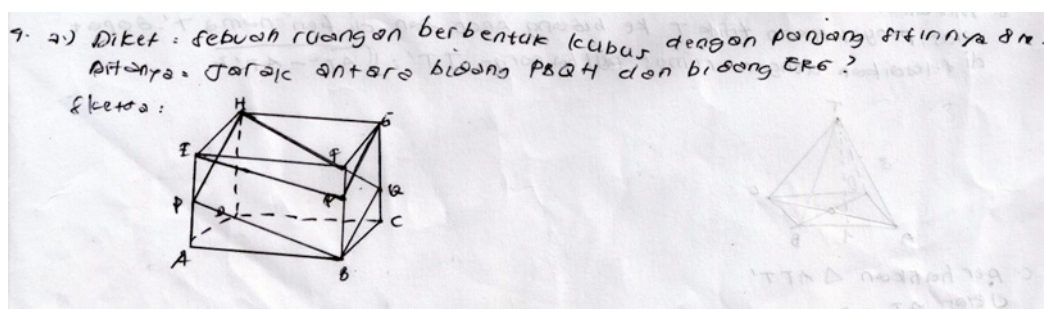 9. a.) Diket : sebuah ruangan berbentuk kubus dengan panjang sisinnya 8 m.
Ditanya : Jarak antara bidang PBQH dan bidang ERG ?
Sketsa :
H
G
E
F
R
Q
P
D
C
A
B